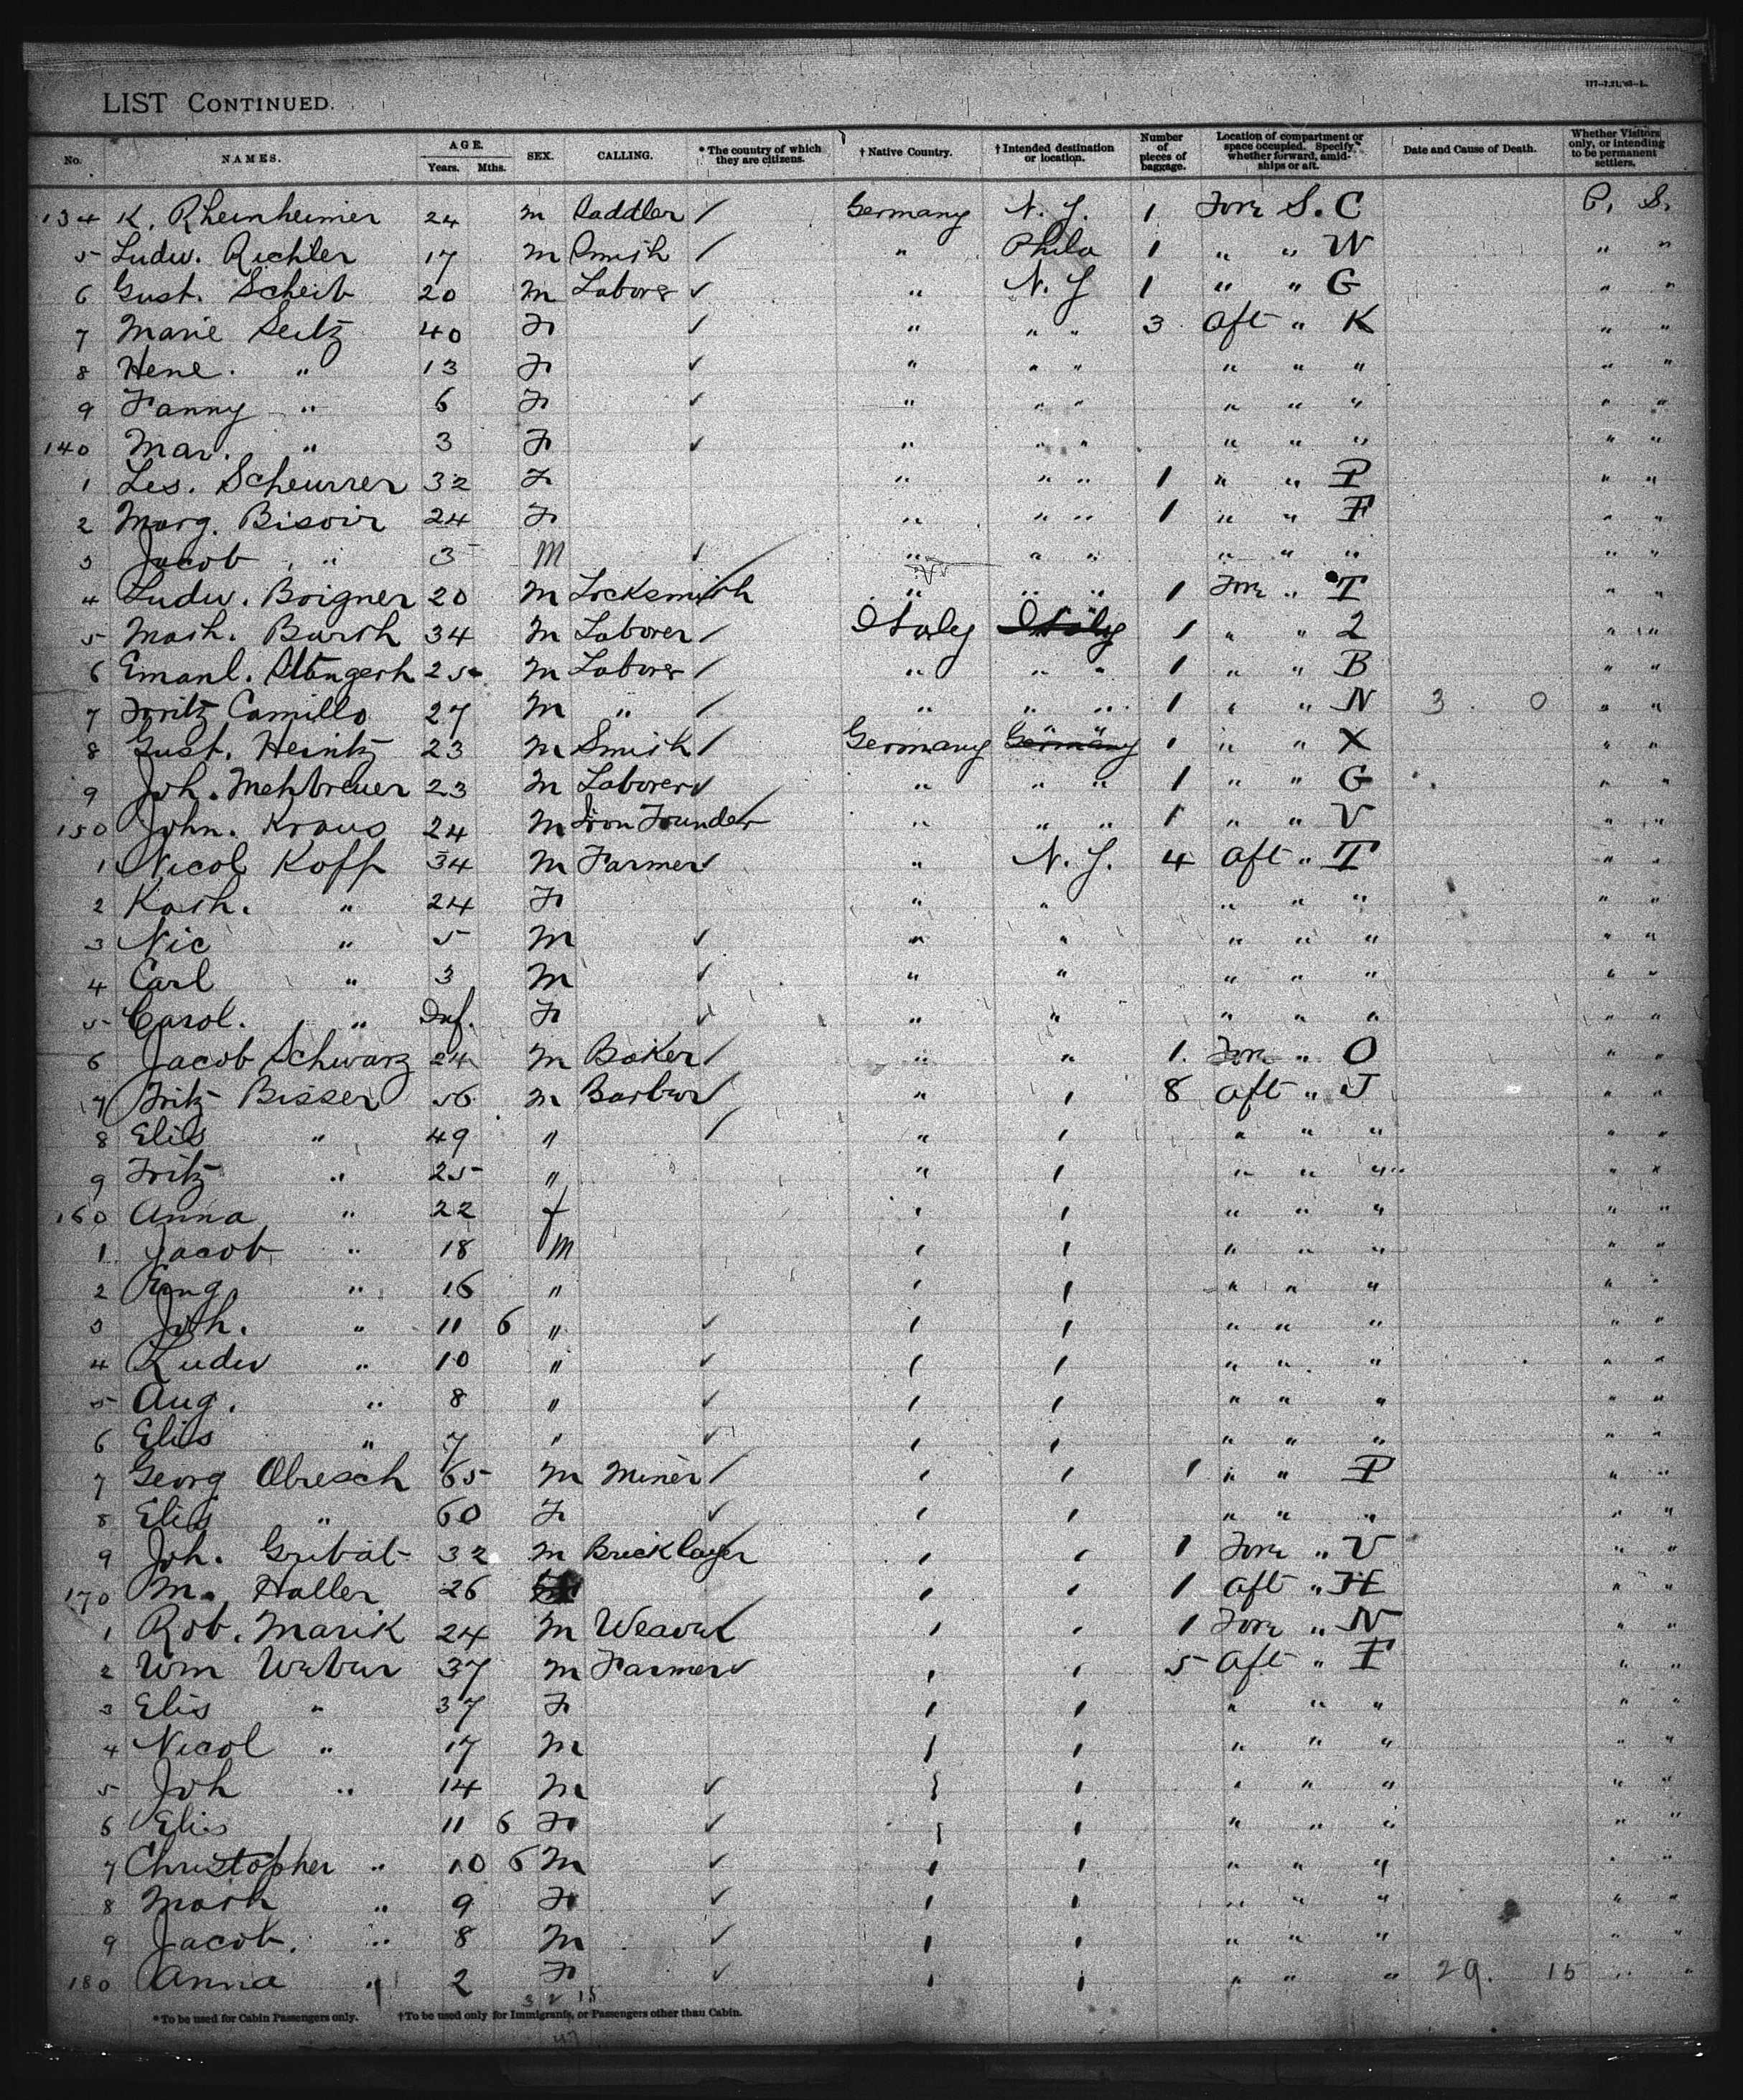 LIST CONTINUED.
No. NAMES. AGE. Years. Mths. SEX. CALLING. * The country of which they are citizens. † Native Country. † Intended destination or location. Number of pieces of baggage. Location of compartment or space occupied. Specify whether forward, amidships or aft. Date and Cause of Death. Whether Visitors only, or intending to be permanent settlers.
134 K. Rheinheimer 24 m Saddler / Germany N. Y. 1 Forw S. C P. S.
5 Ludw. Richter 17 m Smith / " Phila 1 " " W " "
6 Gust. Scheib 20 m Laborer ✓ " N. Y 1 " " G " "
7 Marie Seitz 40 F ✓ " " " 3 aft " K " "
8 Hene. " 13 F ✓ " " " " " " " "
9 Fanny " 6 F ✓ " " " " " " " "
140 Mar. " 3 F ✓ " " " " " " " "
1 Les. Scheurrer 32 F " " " 1 " " P " "
2 Marg. Bisoir 24 F " " " 1 " " F " "
3 Jacob " 3 M ✓ " " " " " " " "
4 Ludw. Boigner 20 m Locksmith " " " 1 Forw " T " "
5 Math. Barth 34 m Laborer / Italy Italy 1 " " 2 " "
6 Emanl. 25 m Laborer / " " " 1 " " B " "
7 Fritz Camillo 27 m " / " " " 1 " " N 3 0 " "
8 Gust. Heintz 23 m Smith / Germany Germany 1 " " X " "
9 Joh. Mehbreuer 23 m Laborer ✓ " " " 1 " " G " "
150 John. Kraus 24 m Iron Founder " " " 1 " " V " "
1 Nicol Koff 34 m Farmer ✓ " N. Y. 4 aft " T " "
2 Kath. " 24 F " " " " " " "
3 Nic " 5 m ✓ " " " " " " "
4 Carl " 3 m ✓ " " " " " " "
5 Carol. " Inf. F ✓ " " " " " " "
6 Jacob Schwarz 24 m Baker / " " 1 Forw " O " "
7 Fritz Bisser 56 m Barber / " 1 8 aft " J " "
8 Elis " 49 " / " 1 " " " " "
9 Fritz " 25 " " 1 " " " " "
160 Anna " 22 f ' 1 " " " " "
1 Jacob " 18 m ' 1 " " " " "
2 Eng " 16 " ' 1 " " " " "
3 Joh. " 11 6 " ✓ ' 1 " " " " "
4 Ludw " 10 " ✓ ' 1 " " " " "
5 Aug. " 8 " ✓ ' 1 " " " " "
6 Elis " 7 " ✓ ' 1 " " " " "
7 Georg Obresch 65 m Miner / ' 1 1 " " P " "
8 Elis " 60 F ✓ ' 1 " " " " "
9 Joh. Gribat 32 m Bricklayer ' ' 1 Forw " V " "
170 M. Haller 26 ' ' 1 aft " H " "
1 Rob. Marik 24 m Weaver ' ' 1 Forw " N " "
2 Wm Weber 37 m Farmer ✓ ' ' 5 aft " F " "
3 Elis " 37 F ' 1 " " " " "
4 Nicol " 17 m ' 1 " " " " "
5 Joh " 14 m ✓ ' 1 " " " " "
6 Elis 11 6 F ✓ ' 1 " " " " "
7 Christopher " 10 6 m ✓ ' 1 " " " " "
8 Math " 9 F ✓ ' 1 " " " " "
9 Jacob. " 8 m ✓ ' 1 " " " " "
180 Anna " 2 F ✓ ' 1 " " " 29. 15 " "
* To be used for Cabin Passengers only. † To be used only for Immigrants, or Passengers other than Cabin.